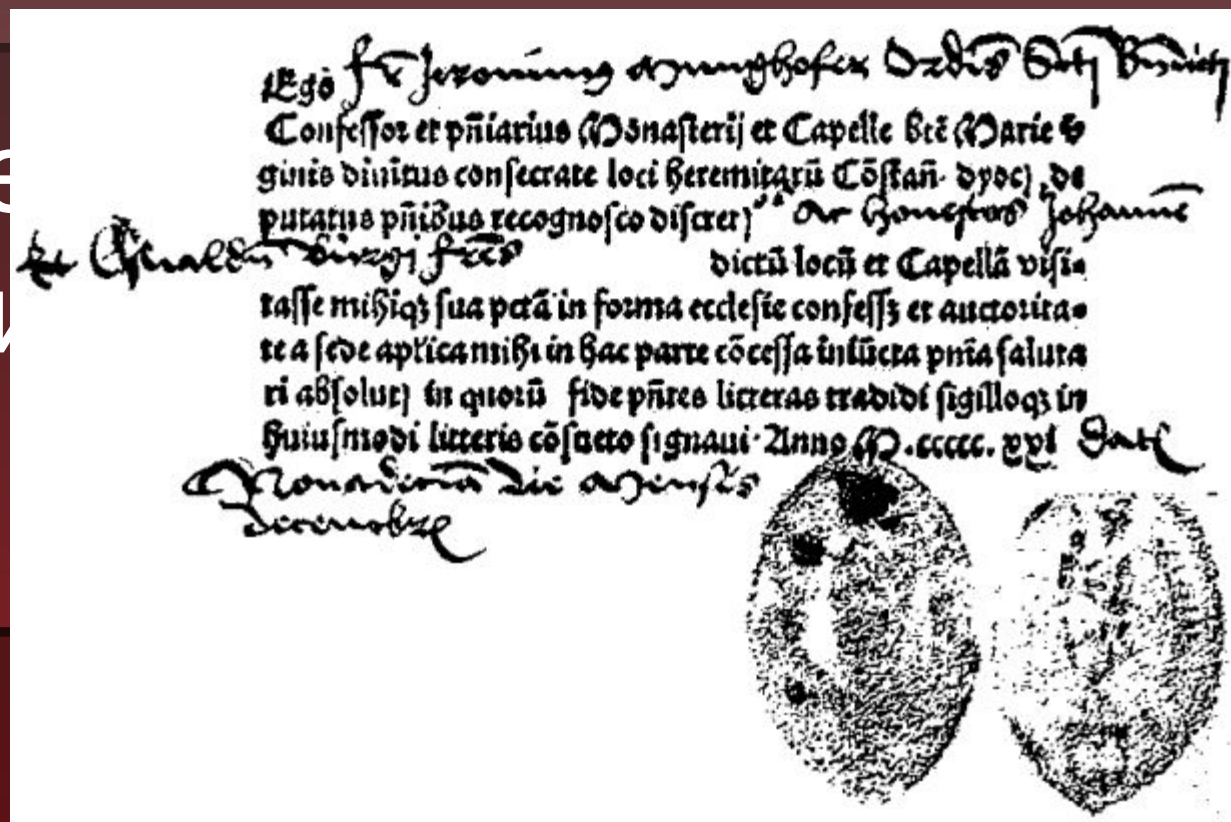 Ego fr Jeronimus Munghofer Ordis Scti Bndicti
Confessor et pñiarius Monasterij et Capelle btē Marie v
ginis diuitus consecrate loci heremitarū Cōstañ. dyoc) de
putatus pñibus recognosco discret) ac honestos Johanne
et frēs dictū locū et Capellā visi-
tasse mihiqȝ sua pctā in forma ecclesie confessȝ et auctorita-
te a sede aplica mihi in hac parte cōcessa iniūcta pnia saluta
ri absolut) in quorū fide pñtes litteras tradidi sigilloqȝ in
huiusmodi litteris cōsueto signaui. Anno M.ccccc.xxi dat
die Mensis
decembr